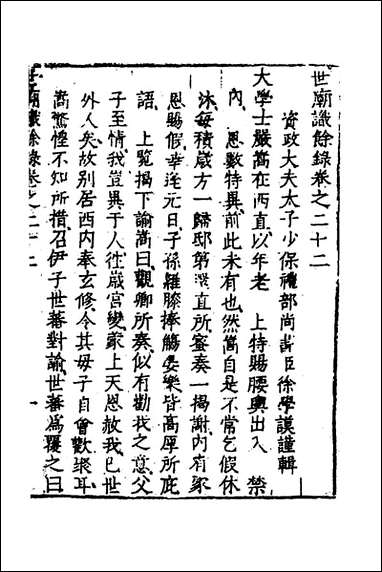 世廟識餘錄卷之二十二
資政大夫太子少保禮部尚書臣徐學謨謹輯
大學士嚴嵩在西直以年老　上特賜腰輿出入　禁
內　恩數特異前此未有也然嵩自是不常乞假休
沐每積歲方一歸邸第還直所密奏一揭謝內有家
恩賜假幸逢元日子孫羅膝捧觴宴樂皆高厚所庇
語　上覽揭下諭嵩曰觀卿所奏似有勸我之意父
子至情我豈異于人往歲宮變蒙上天恩赦我已世
外人矣故別居西內奉玄修令其母子自會歡聚耳
嵩驚悝不知所措召伊子世蕃對諭世蕃為覆之曰
世廟識餘錄卷之二十二
一